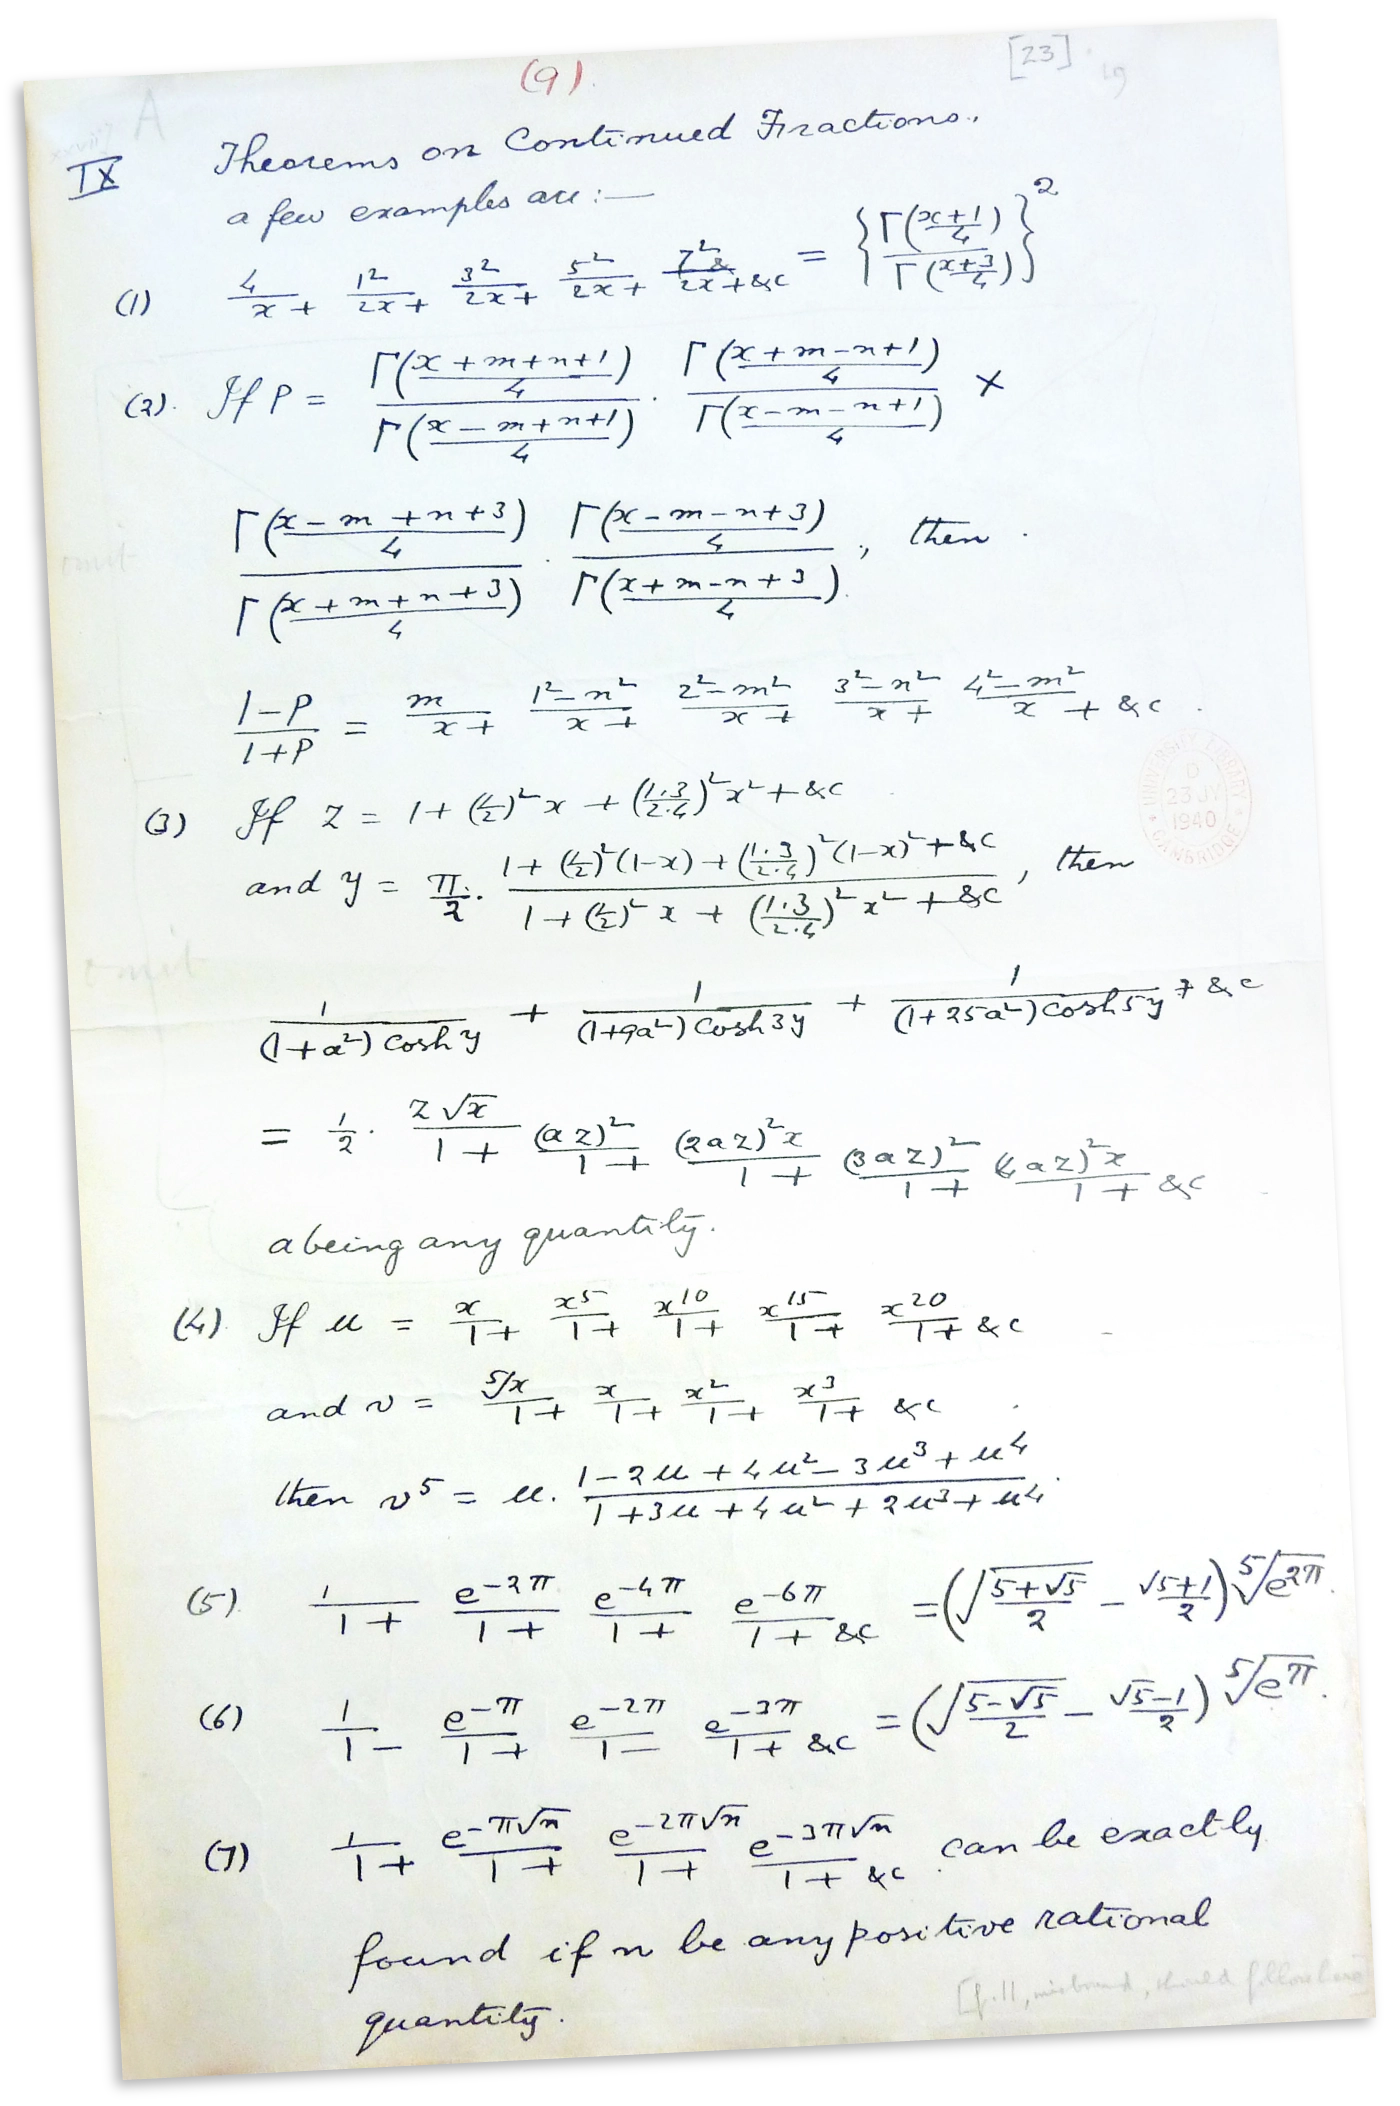 (9).
[23]
19
A
IX Theorems on Continued Fractions.
a few examples are :—
(1) 4/x + 1²/2x + 3²/2x + 5²/2x + 7²/2x + &c = {Γ((x+1)/4) / Γ((x+3)/4)}²
(2). If P = Γ((x+m+n+1)/4) / Γ((x−m+n+1)/4) · Γ((x+m−n+1)/4) / Γ((x−m−n+1)/4) ×
Γ((x−m+n+3)/4) / Γ((x+m+n+3)/4) · Γ((x−m−n+3)/4) / Γ((x+m−n+3)/4), then
omit
(1−P)/(1+P) = m/x + (1²−n²)/x + (2²−m²)/x + (3²−n²)/x + (4²−m²)/x + &c.
UNIVERSITY LIBRARY
D
23 JY
1940
CAMBRIDGE
(3) If z = 1 + (1/2)²x + (1·3/2·4)²x² + &c
and y = π/2 · (1 + (1/2)²(1−x) + (1·3/2·4)²(1−x)² + &c) / (1 + (1/2)²x + (1·3/2·4)²x² + &c), then
omit
1/((1+a²) cosh y) + 1/((1+9a²) cosh 3y) + 1/((1+25a²) cosh 5y) + &c
= 1/2 · z√x/1 + (az)²/1 + (2az)²x/1 + (3az)²/1 + (4az)²x/1 + &c
a being any quantity.
(4) If u = x/1 + x⁵/1 + x¹⁰/1 + x¹⁵/1 + x²⁰/1 + &c
and v = ⁵√x/1 + x/1 + x²/1 + x³/1 + &c
then v⁵ = u · (1−2u+4u²−3u³+u⁴)/(1+3u+4u²+2u³+u⁴).
(5). 1/1 + e^−2π/1 + e^−4π/1 + e^−6π/1 + &c = (√((5+√5)/2) − (√5+1)/2) ⁵√e^2π.
(6) 1/1 − e^−π/1 + e^−2π/1 − e^−3π/1 + &c = (√((5−√5)/2) − (√5−1)/2) ⁵√e^π.
(7) 1/1 + e^−π√n/1 + e^−2π√n/1 + e^−3π√n/1 + &c can be exactly
found if n be any positive rational
quantity.
[f.11, misbound, should follow here]